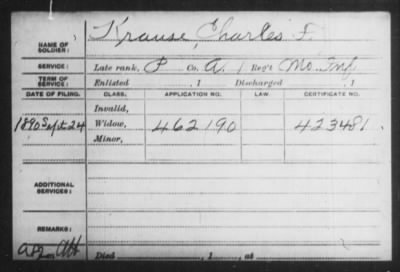 NAME OF SOLDIER: Krause, Charles F.
SERVICE: Late rank, P Co. A, 1 Reg't Mo. Inf
TERM OF SERVICE: Enlisted , 1 Discharged , 1
DATE OF FILING. CLASS. APPLICATION NO. LAW. CERTIFICATE NO.
Invalid,
1890 Sept 24 Widow, 462190 423481
Minor,
ADDITIONAL SERVICES:
REMARKS:
Died , 1 , at